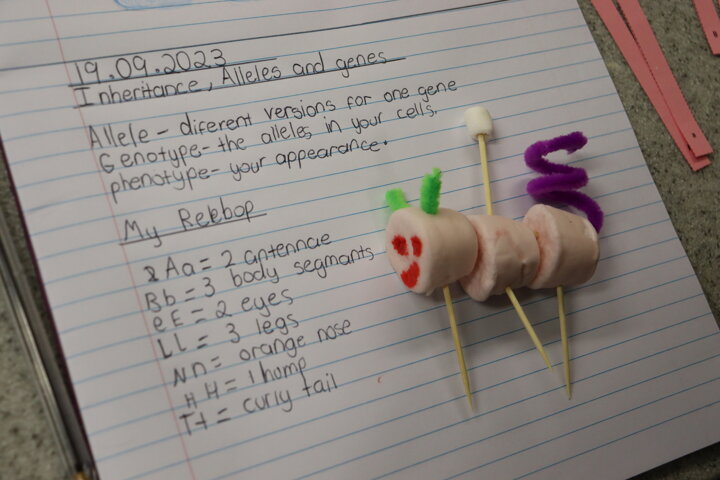 19.09.2023
Inheritance, Alleles and genes
Allele - diferent versions for one gene
Genotype - the alleles in your cells.
phenotype - your appearance.
My Rebbop
Aa = 2 antennae
Bb = 3 body segmants
eE = 2 eyes
LL = 3 legs
Nn = orange nose
HH = 1 hump
Tt = curly tail